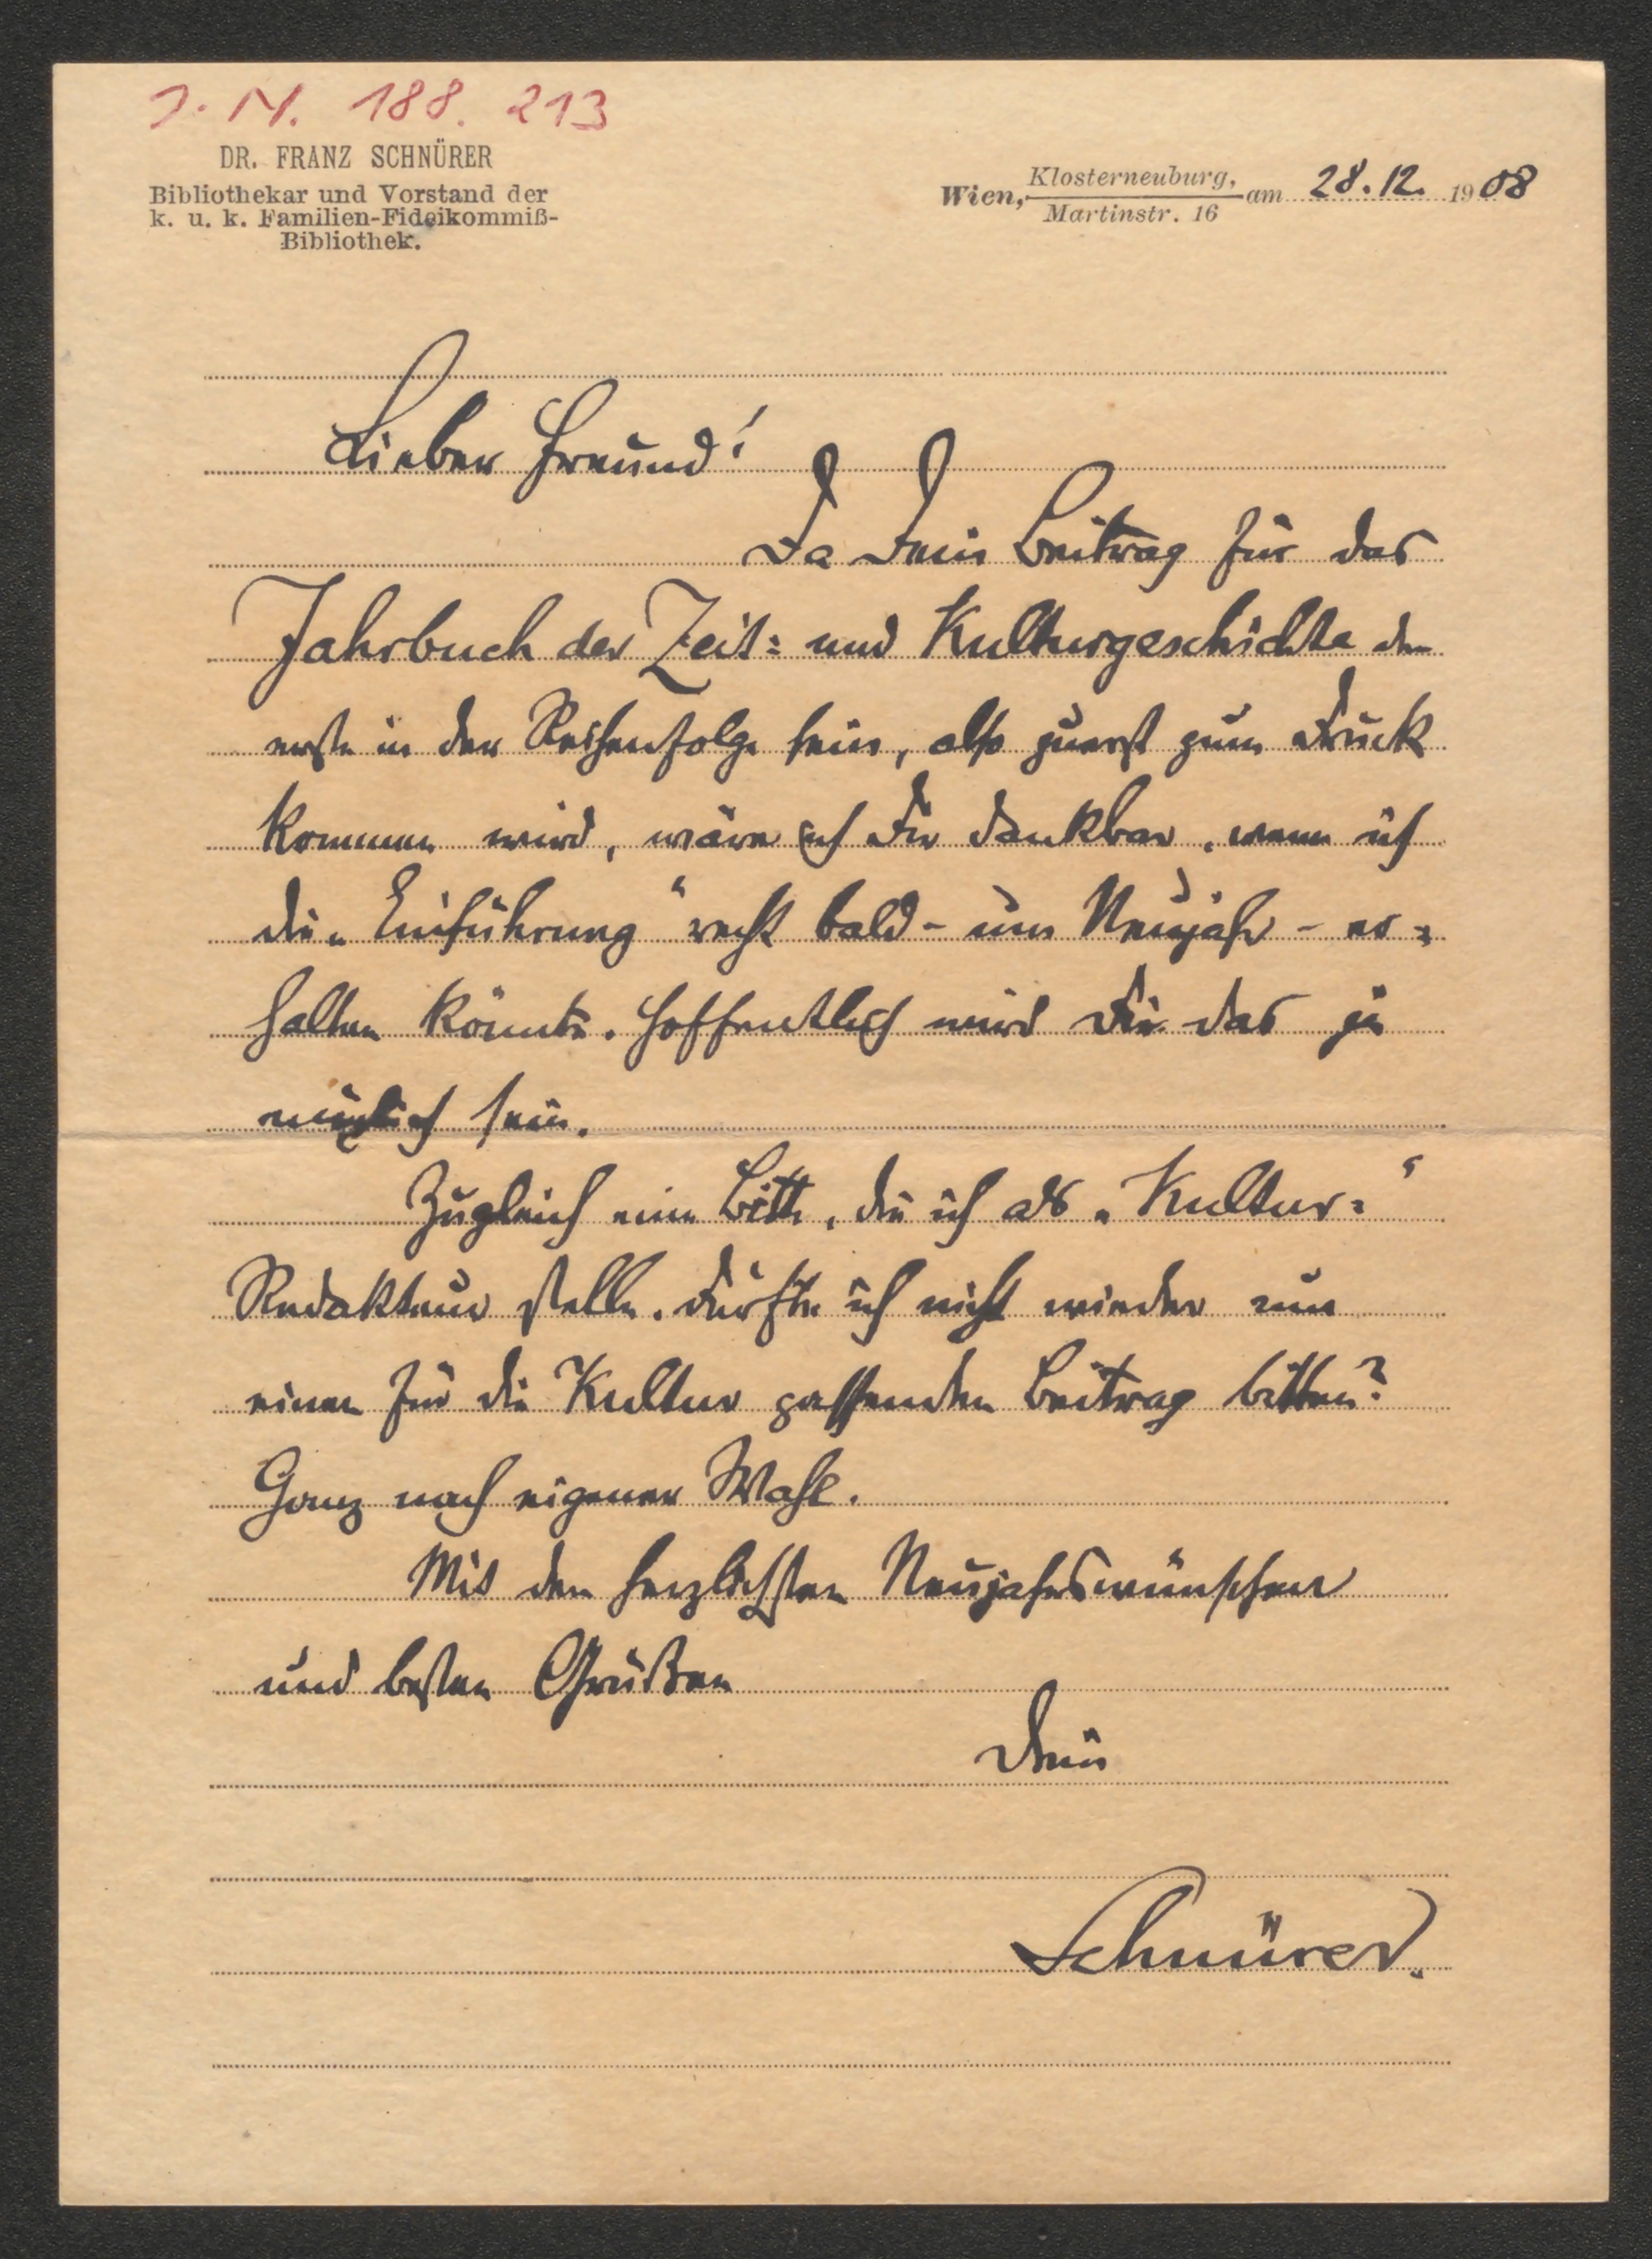 J. N. 188. 213
DR. FRANZ SCHNÜRER
Bibliothekar und Vorstand der
k. u. k. Familien-Fideikommiß-
Bibliothek.
Wien, Klosterneuburg, Martinstr. 16 am 28.12. 1908
Lieber Freund!
Da Dein Beitrag für das
Jahrbuch der Zeit= und Kulturgeschichte der
erste in der Reihenfolge sein, also zuerst zum Druck
kommen wird, wäre ich Dir dankbar, wenn ich
die „Einführung“ recht bald - um Neujahr - er=
halten könnte. Hoffentlich wird Dir das ja
möglich sein.
Zugleich eine Bitte, die ich als „Kultur=“
Redakteur stelle. Dürfte ich nicht wieder um
einen für die Kultur passenden Beitrag bitten?
Ganz nach eigener Wahl.
Mit den herzlichsten Neujahrswünschen
und besten Grüßen
Dein
Schnürer.